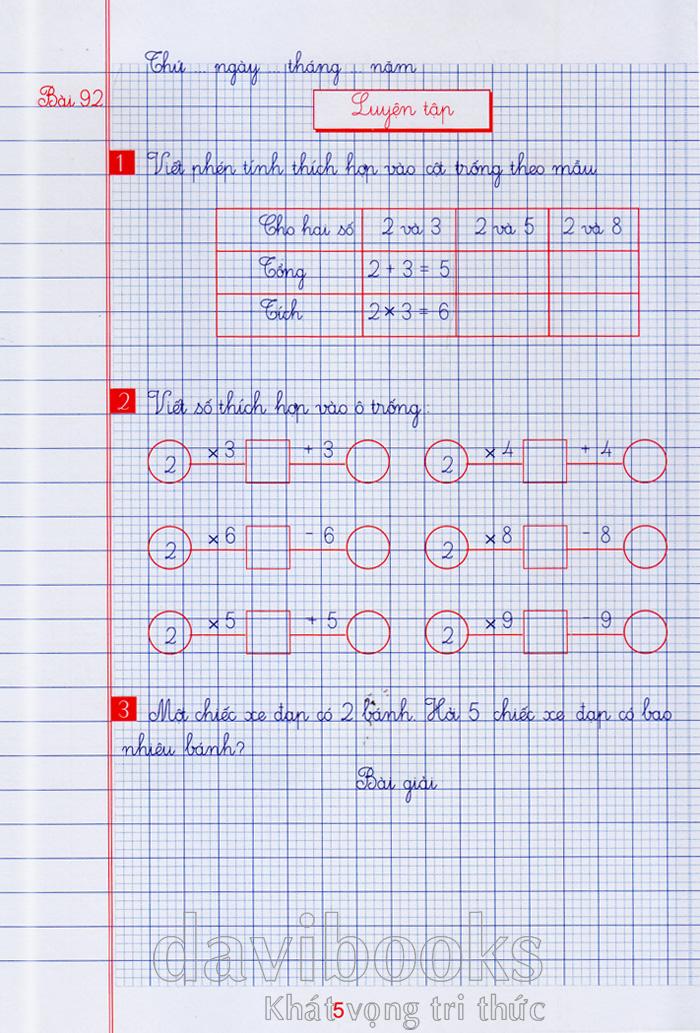 Thứ ... ngày ... tháng ... năm
Bài 92
Luyện tập
1 Viết phép tính thích hợp vào cột trống theo mẫu
Cho hai số 2 và 3 2 và 5 2 và 8
Tổng 2 + 3 = 5
Tích 2 × 3 = 6
2 Viết số thích hợp vào ô trống:
2 × 3 + 3 2 × 4 + 4
2 × 6 - 6 2 × 8 - 8
2 × 5 + 5 2 × 9 - 9
3 Một chiếc xe đạp có 2 bánh. Hỏi 5 chiếc xe đạp có bao
nhiêu bánh?
Bài giải
davibooks
Khát vọng tri thức
5